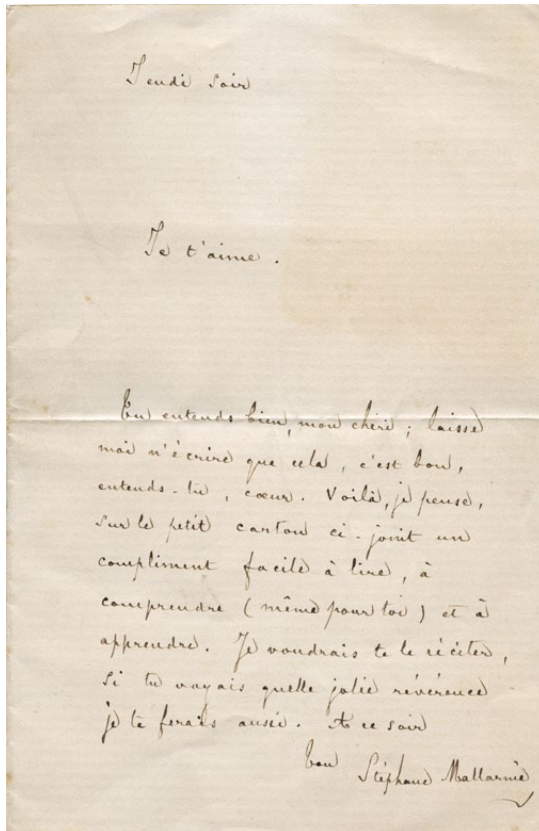 Jeudi soir
Je t'aime.
Tu entends bien, mon chéri ; laisse
moi n'écrire que cela, c'est bon,
entends-tu, cœur. Voilà, je pense,
sur le petit carton ci-joint un
compliment facile à lire, à
comprendre (même pour toi) et à
apprendre. Je voudrais te le réciter,
si tu voyais quelle jolie révérence
je te ferais aussi. A ce soir
Ton Stéphane Mallarmé